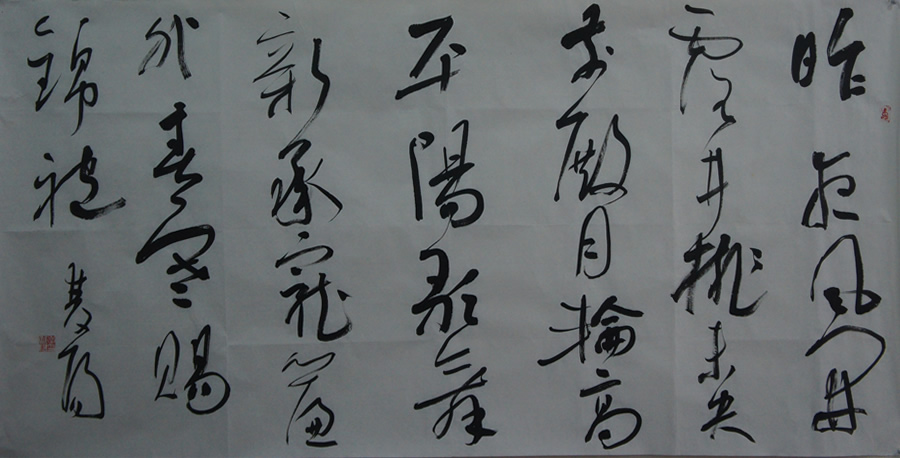 昨夜風開
露井桃未央
前殿月輪高
平陽歌舞
新承寵簾
外春寒賜
錦袍